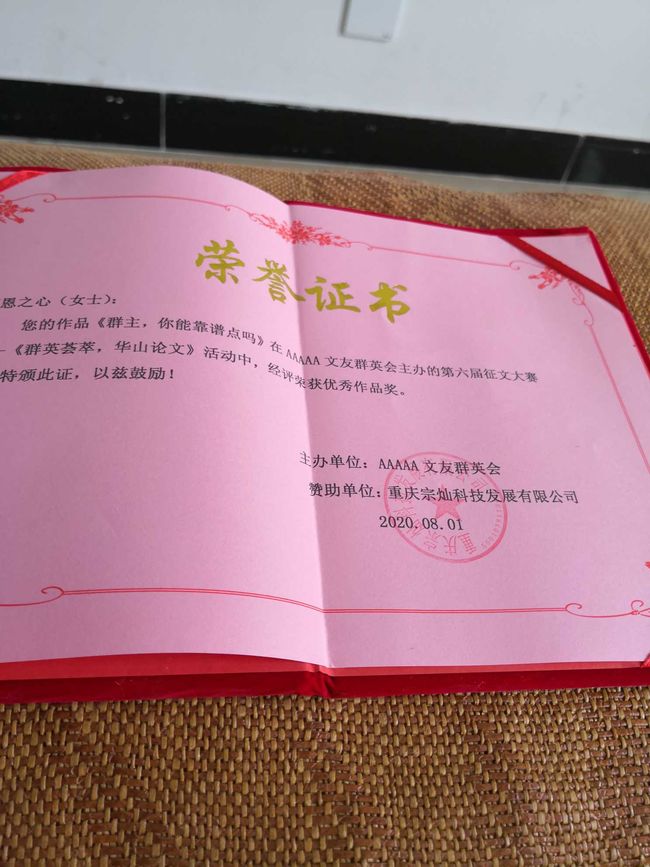 荣誉证书
恩之心（女士）：
您的作品《群主，你能靠谱点吗》在 AAAAA 文友群英会主办的第六届征文大赛
-《群英荟萃，华山论文》活动中，经评荣获优秀作品奖。
特颁此证，以兹鼓励！
主办单位：AAAAA 文友群英会
赞助单位：重庆宗灿科技发展有限公司
2020.08.01